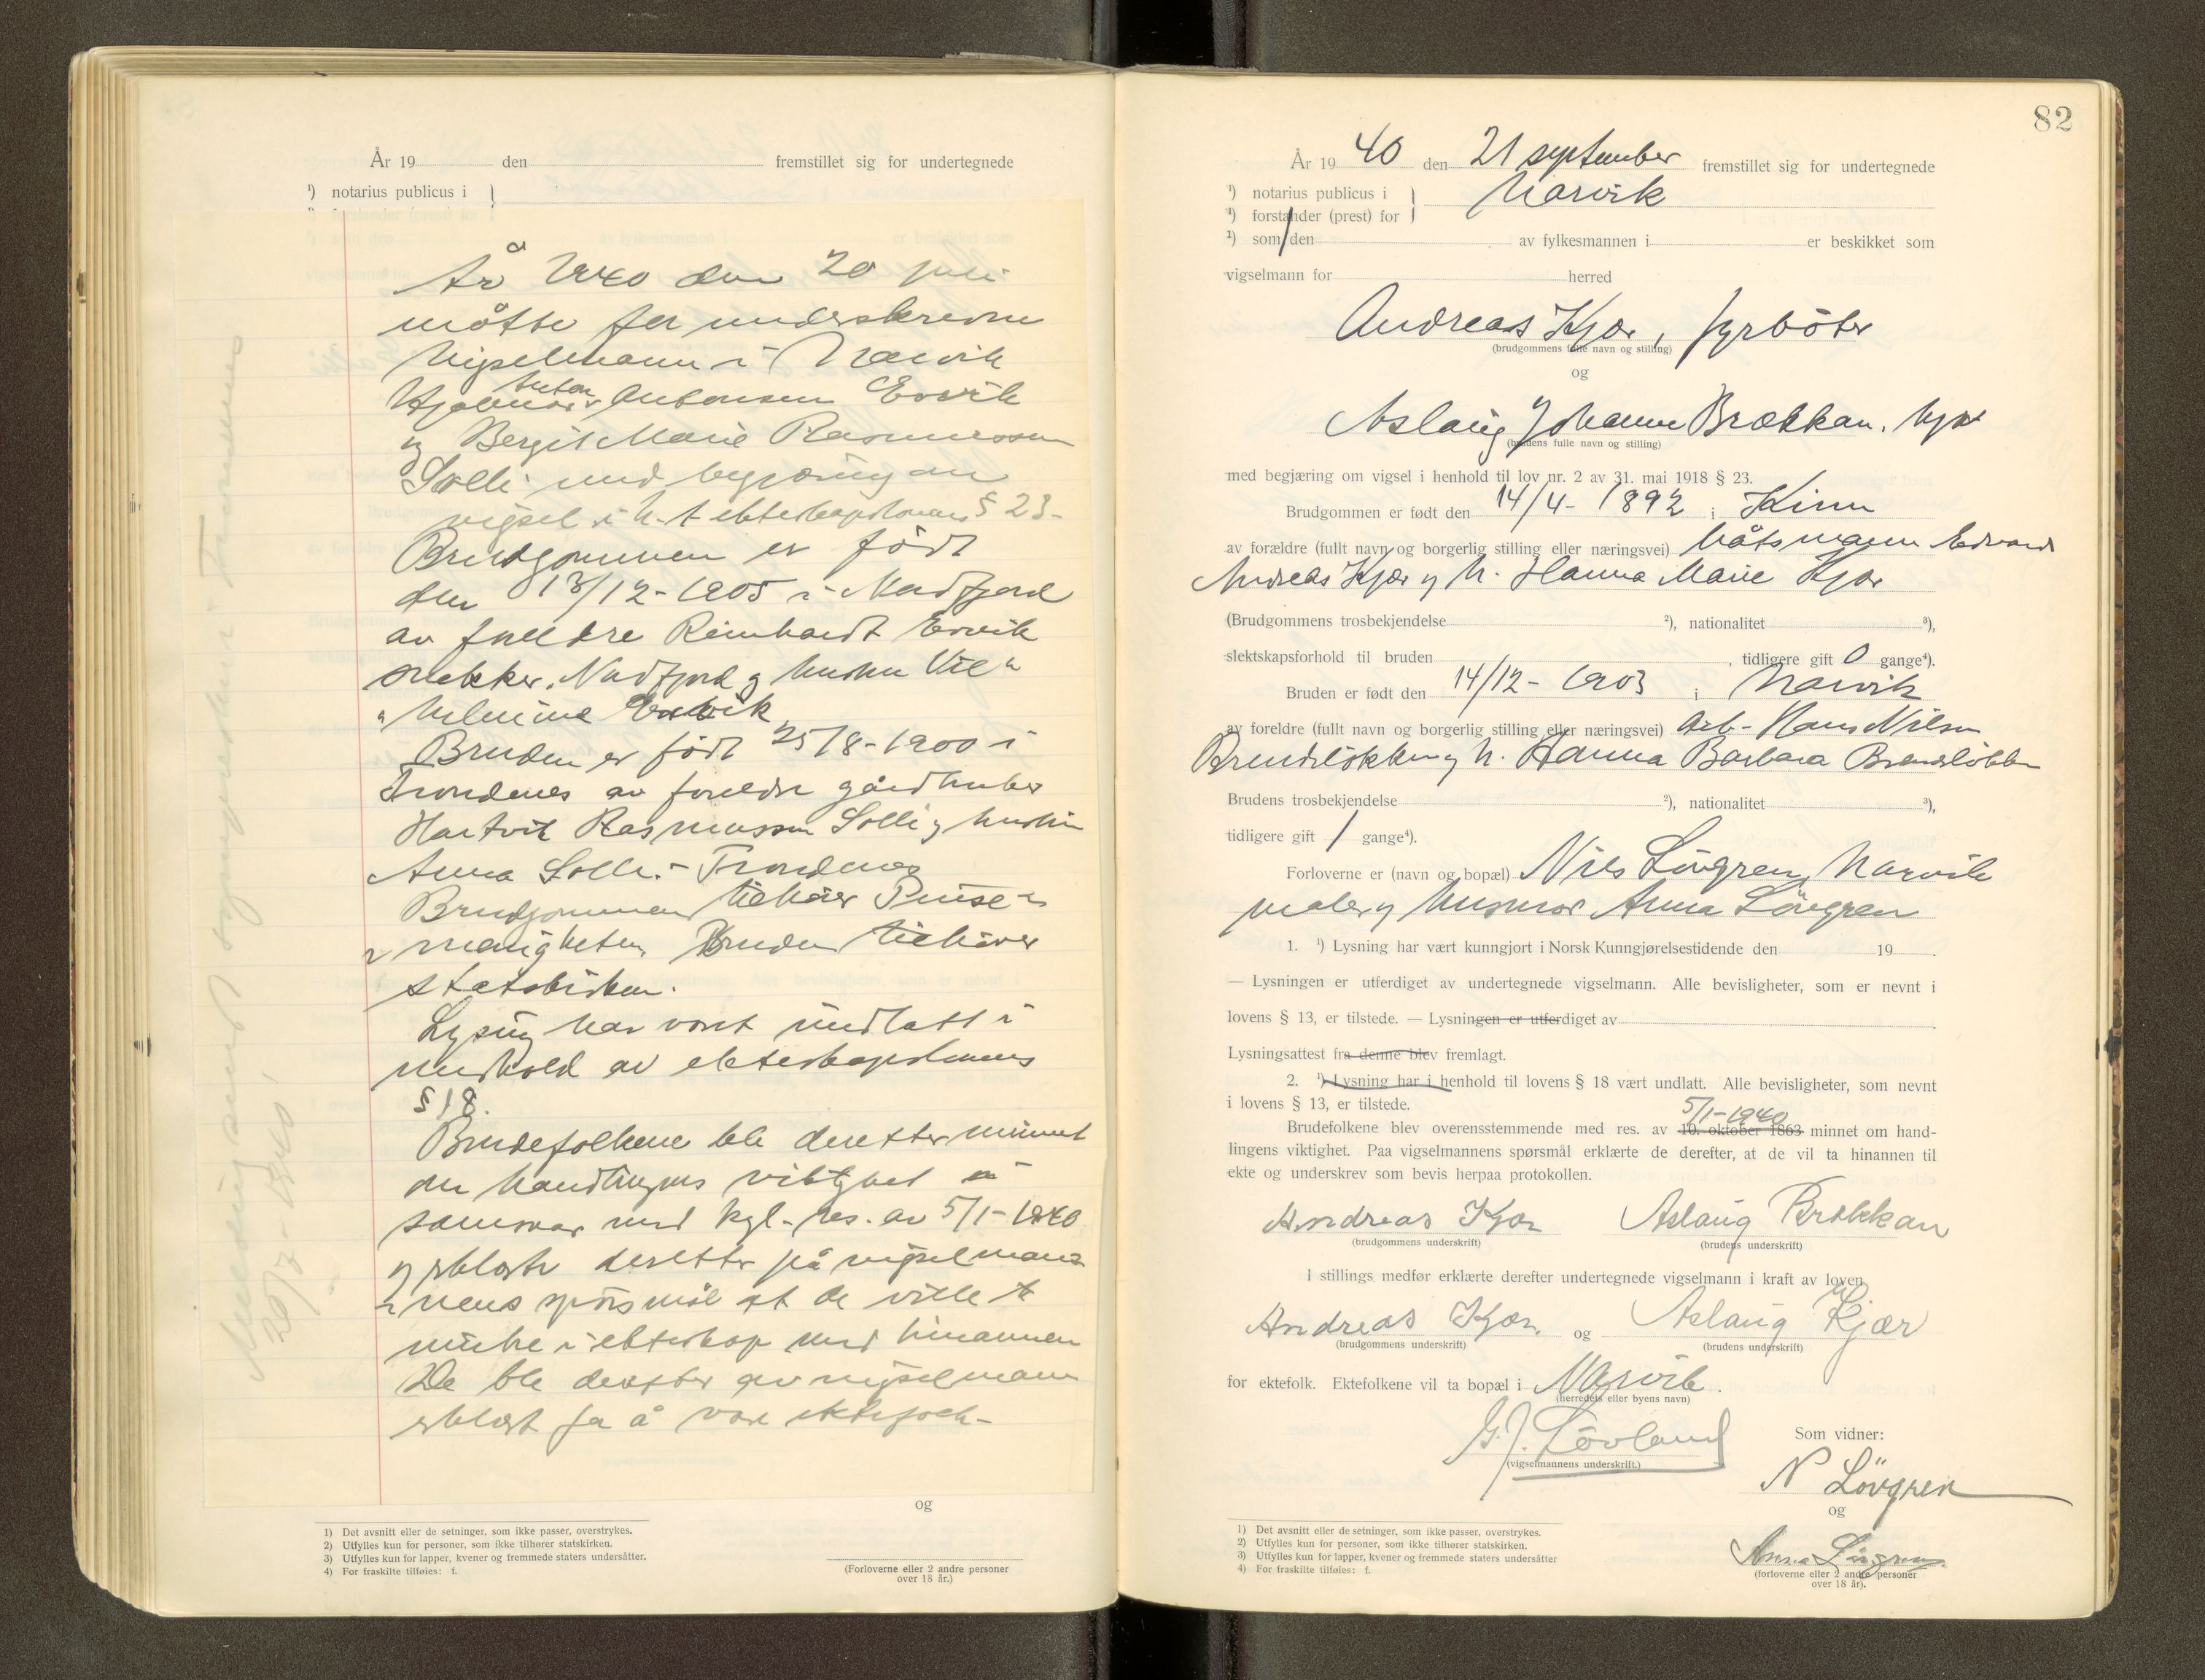 År 19 den fremstillet sig for undertegnede
¹) notarius publicus i
År 1940 den 20 juli
møtte for underskrevne
Vigselmann i Narvik
Hjalmar Anton Antonsen Ervik
og Bergit Marie Rasmussen
Solli med begjæring om
vigsel i h.t ekteskapslovens § 23-
Brudgommen er født
den 13/12-1905 i
av foreldre Reinhardt Ervik
og hustru Vil"
"helmine Ervik
Bruden er født 25/8-1900 i
Trondenes av foreldre gårdbruker
Hartvik Rasmussen Solli og hustru
Anna Solli.- Trondenes
Brudgommen tilhører Pinse-
menigheten, Bruden tilhører
statskirken.
Lysing har vært undlatt i
medhold av ekteskapslovens
§ 18.
Brudefolkene ble deretter minnet
om handlingens viktighet i
samsvar med kgl. res. av 5/1-1940
og erklærte deretter på vigselman-
nens spørsmål at de ville
inntre i ekteskap med hinannen
De ble deretter av vigselmann
erklært for å være ektefolk-
Melding sendt sognepresten i Trondenes
20/7-1940.
og
1) Det avsnitt eller de setninger, som ikke passer, overstrykes.
2) Utfylles kun for personer, som ikke tilhører statskirken.
3) Utfylles kun for lapper, kvener og fremmede staters undersåtter.
4) For fraskilte tilføies: f.
(Forloverne eller 2 andre personer
over 18 år.)
82
År 1940 den 21 september fremstillet sig for undertegnede
¹) notarius publicus i Narvik
¹) forstander (prest) for
¹) som den av fylkesmannen i er beskikket som
vigselmann for herred
Andreas Kjær, fyrbøter
(brudgommens fulle navn og stilling)
og
Aslaug Johanne Brækkan.
(brudens fulle navn og stilling)
med begjæring om vigsel i henhold til lov nr. 2 av 31. mai 1918 § 23.
Brudgommen er født den 14/4-1892 i Kinn
av forældre (fullt navn og borgerlig stilling eller næringsvei) båtsmann Edvard
Andreas Kjær og h. Hanna Marie Kjær
(Brudgommens trosbekjendelse ²), nationalitet ³),
slektskapsforhold til bruden , tidligere gift 0 gange⁴).
Bruden er født den 14/12-1903 i Narvik
av foreldre (fullt navn og borgerlig stilling eller næringsvei) Arb. Hans Nilsen
Brendløkken og h. Hanna Barbara Brendløkken
Brudens trosbekjendelse ²), nationalitet ³),
tidligere gift 1 gange⁴).
Forloverne er (navn og bopæl) Nils Lövgren, Narvik
maler og husmor Anna Lövgren
1. ¹) Lysning har vært kunngjort i Norsk Kunngjørelsestidende den 19 .
— Lysningen er utferdiget av undertegnede vigselmann. Alle bevisligheter, som er nevnt i
lovens § 13, er tilstede. — Lysningen er utferdiget av
Lysningsattest fra denne blev fremlagt.
2. ¹) Lysning har i henhold til lovens § 18 vært undlatt. Alle bevisligheter, som nevnt
i lovens § 13, er tilstede.
5/1-1940
Brudefolkene blev overensstemmende med res. av 10. oktober 1863 minnet om hand-
lingens viktighet. Paa vigselmannens spørsmål erklærte de derefter, at de vil ta hinannen til
ekte og underskrev som bevis herpaa protokollen.
Andreas Kjær Aslaug Brækkan
(brudgommens underskrift) (brudens underskrift)
I stillings medfør erklærte derefter undertegnede vigselmann i kraft av loven
Andreas Kjær. og Aslaug Kjær
(brudgommens underskrift) (brudens underskrift)
for ektefolk. Ektefolkene vil ta bopæl i Narvik.
(herredets eller byens navn)
G. J. Løvland
(vigselmannens underskrift.)
Som vidner:
N Lövgren
og
Anna Lövgren.
(forloverne eller 2 andre personer
over 18 år).
1) Det avsnitt eller de setninger, som ikke passer, overstrykes.
2) Utfylles kun for personer, som ikke tilhører statskirken.
3) Utfylles kun for lapper, kvener og fremmede staters undersåtter
4) For fraskilte tilføies: f.